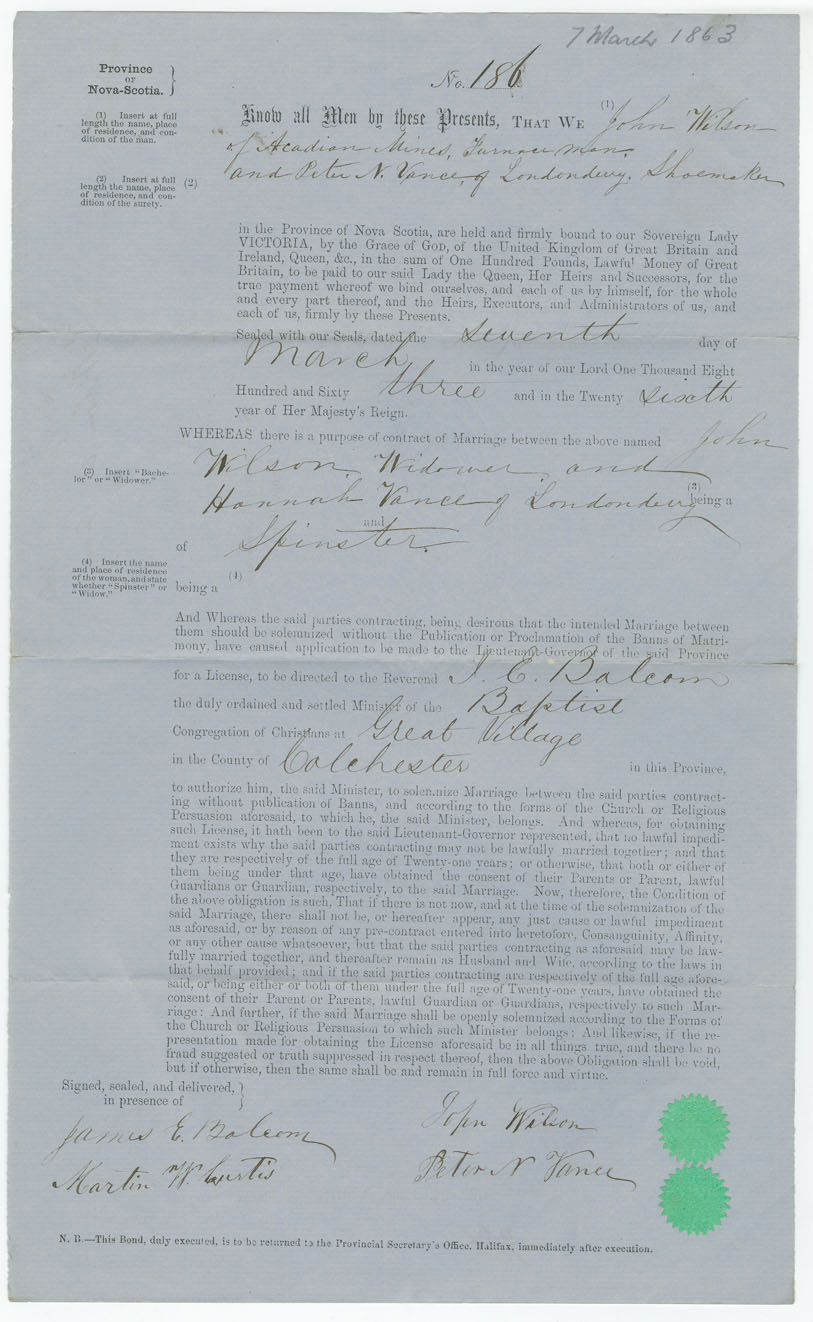 7 March 1863
Province
OF
Nova-Scotia.
No. 186
(1) Insert at full
length the name, place
of residence, and con-
dition of the man.
Know all Men by these Presents, THAT WE (1) John Wilson
of Acadian Mines, Furnace man.
(2) Insert at full
length the name, place
of residence, and con-
dition of the surety.
(2) and Peter N. Vance, of Londonderry. Shoemaker
in the Province of Nova Scotia, are held and firmly bound to our Sovereign Lady
VICTORIA, by the Grace of GOD, of the United Kingdom of Great Britain and
Ireland, Queen, &c., in the sum of One Hundred Pounds, Lawful Money of Great
Britain, to be paid to our said Lady the Queen, Her Heirs and Successors, for the
true payment whereof we bind ourselves, and each of us by himself, for the whole
and every part thereof, and the Heirs, Executors, and Administrators of us, and
each of us, firmly by these Presents.
Sealed with our Seals, dated the seventh day of
March in the year of our Lord One Thousand Eight
Hundred and Sixty three and in the Twenty sixth
year of Her Majesty's Reign.
WHEREAS there is a purpose of contract of Marriage between the above named John
(3) Insert "Bache-
lor" or "Widower."
Wilson, Widower, and
Hannah Vance of Londonderry (3) being a
and
of Spinster.
(4) Insert the name
and place of residence
of the woman, and state
whether "Spinster" or
"Widow."
(4)
being a
And Whereas the said parties contracting, being desirous that the intended Marriage between
them should be solemnized without the Publication or Proclamation of the Banns of Matri-
mony, have caused application to be made to the Lieutenant-Governor of the said Province
for a License, to be directed to the Reverend J. E. Balcom
the duly ordained and settled Minister of the Baptist
Congregation of Christians at Great Village
in the County of Colchester in this Province,
to authorize him, the said Minister, to solemnize Marriage between the said parties contract-
ing without publication of Banns, and according to the forms of the Church or Religious
Persuasion aforesaid, to which he, the said Minister, belongs. And whereas, for obtaining
such License, it hath been to the said Lieutenant-Governor represented, that no lawful impedi-
ment exists why the said parties contracting may not be lawfully married together; and that
they are respectively of the full age of Twenty-one years; or otherwise, that both or either of
them being under that age, have obtained the consent of their Parents or Parent, lawful
Guardians or Guardian, respectively, to the said Marriage. Now, therefore, the Condition of
the above obligation is such, That if there is not now, and at the time of the solemnization of the
said Marriage, there shall not be, or hereafter appear, any just cause or lawful impediment
as aforesaid, or by reason of any pre-contract entered into heretofore, Consanguinity, Affinity,
or any other cause whatsoever, but that the said parties contracting as aforesaid may be law-
fully married together, and thereafter remain as Husband and Wife, according to the laws in
that behalf provided; and if the said parties contracting are respectively of the full age afore-
said, or being either or both of them under the full age of Twenty-one years, have obtained the
consent of their Parent or Parents, lawful Guardian or Guardians, respectively to such Mar-
riage: And further, if the said Marriage shall be openly solemnized according to the Forms of
the Church or Religious Persuasion to which such Minister belongs: And likewise, if the re-
presentation made for obtaining the License aforesaid be in all things true, and there be no
fraud suggested or truth suppressed in respect thereof, then the above Obligation shall be void,
but if otherwise, then the same shall be and remain in full force and virtue.
Signed, sealed, and delivered,
in presence of
James E. Balcom
Martin W. Curtis
John Wilson
Peter N Vance
N. B.—This Bond, duly executed, is to be returned to the Provincial Secretary's Office, Halifax, immediately after execution.